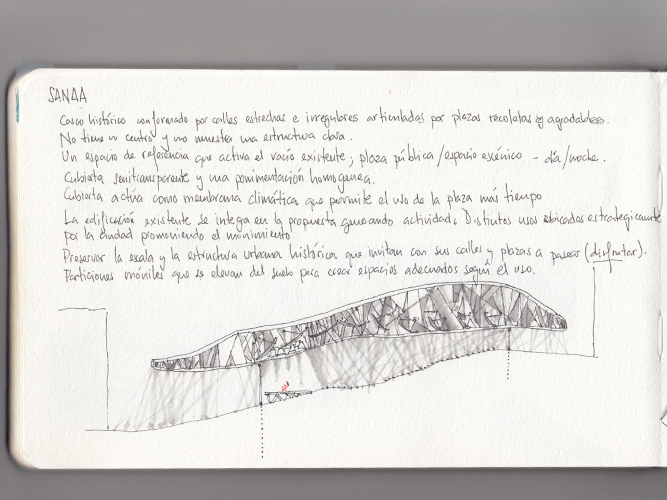 SANAA
Casco histórico conformado por calles estrechas e irregulares articuladas por plazas recoletas y agradables.
No tiene un centro y no muestra una estructura clara.
Un espacio de referencia que activa el vacío existente; plaza pública/espacio escénico - día/noche.
Cubierta semitransparente y una pavimentación homogénea.
Cubierta activa como membrana climática que permite el uso de la plaza más tiempo
La edificación existente se integra en la propuesta generando actividad. Distintos usos ubicados estrategicamente
por la ciudad promoviendo el movimiento
Preservar la escala y la estructura urbana histórica que invitan con sus calles y plazas a pasear (disfrutar).
Particiones móviles que se elevan del suelo para crear espacios adecuados según el uso.